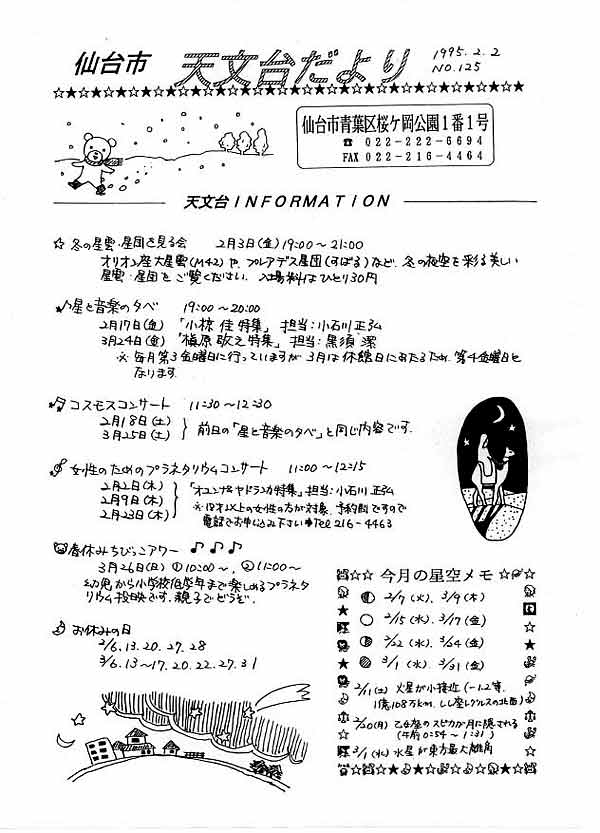 仙台市 天文台だより 1995.2.2
NO.125
仙台市青葉区桜ケ岡公園1番1号
☎ 022-222-6694
FAX 022-216-4464
天文台INFORMATION
☆ 冬の星雲・星団を見る会 2月3日(金)19:00〜21:00
オリオン座大星雲(M42)や、プレアデス星団(すばる)など、冬の夜空を彩る美しい
星雲・星団をご覧ください。入場料はひとり30円
★♪星と音楽の夕べ 19:00〜20:00
2月17日(金)「小椋 佳 特集」 担当:小石川 正弘
3月24日(金)「槇原 敬之 特集」 担当:黒須 潔
※毎月第3金曜日に行っていますが、3月は休館日にあたるため、第4金曜日と
なります。
コスモスコンサート 11:30〜12:30
2月18日(土)
3月25日(土)
前日の「星と音楽の夕べ」と同じ内容です.
女性のためのプラネタリウムコンサート 11:00〜12:15
2月2日(木)
2月9日(木)
2月23日(木)
特集」担当:小石川 正弘
※18才以上の女性の方が対象. 予約制ですので
電話でお申し込み下さい Tel 216-4463
春休みちびっこアワー ♪♪♪
3月26日(日)①10:00〜, ②11:00〜
幼児から小学校低学年まで楽しめるプラネタ
リウム投映です.親子でどうぞ.
お休みの日
2/6.13.20.27.28
3/6.13〜17.20.22.27.31
今月の星空メモ
2/7(火)、3/9(木)
2/15(水)、3/17(金)
2/22(水)、3/24(金)
3/1(水)、3/31(金)
2/11(土)火星が小接近(-1.2等、
1億108万km、しし座レグルスの北西)
2/20(月)乙女座のスピカが月に隠される
(午前0:54〜1:31)
3/1(水)水星が東方最大離角